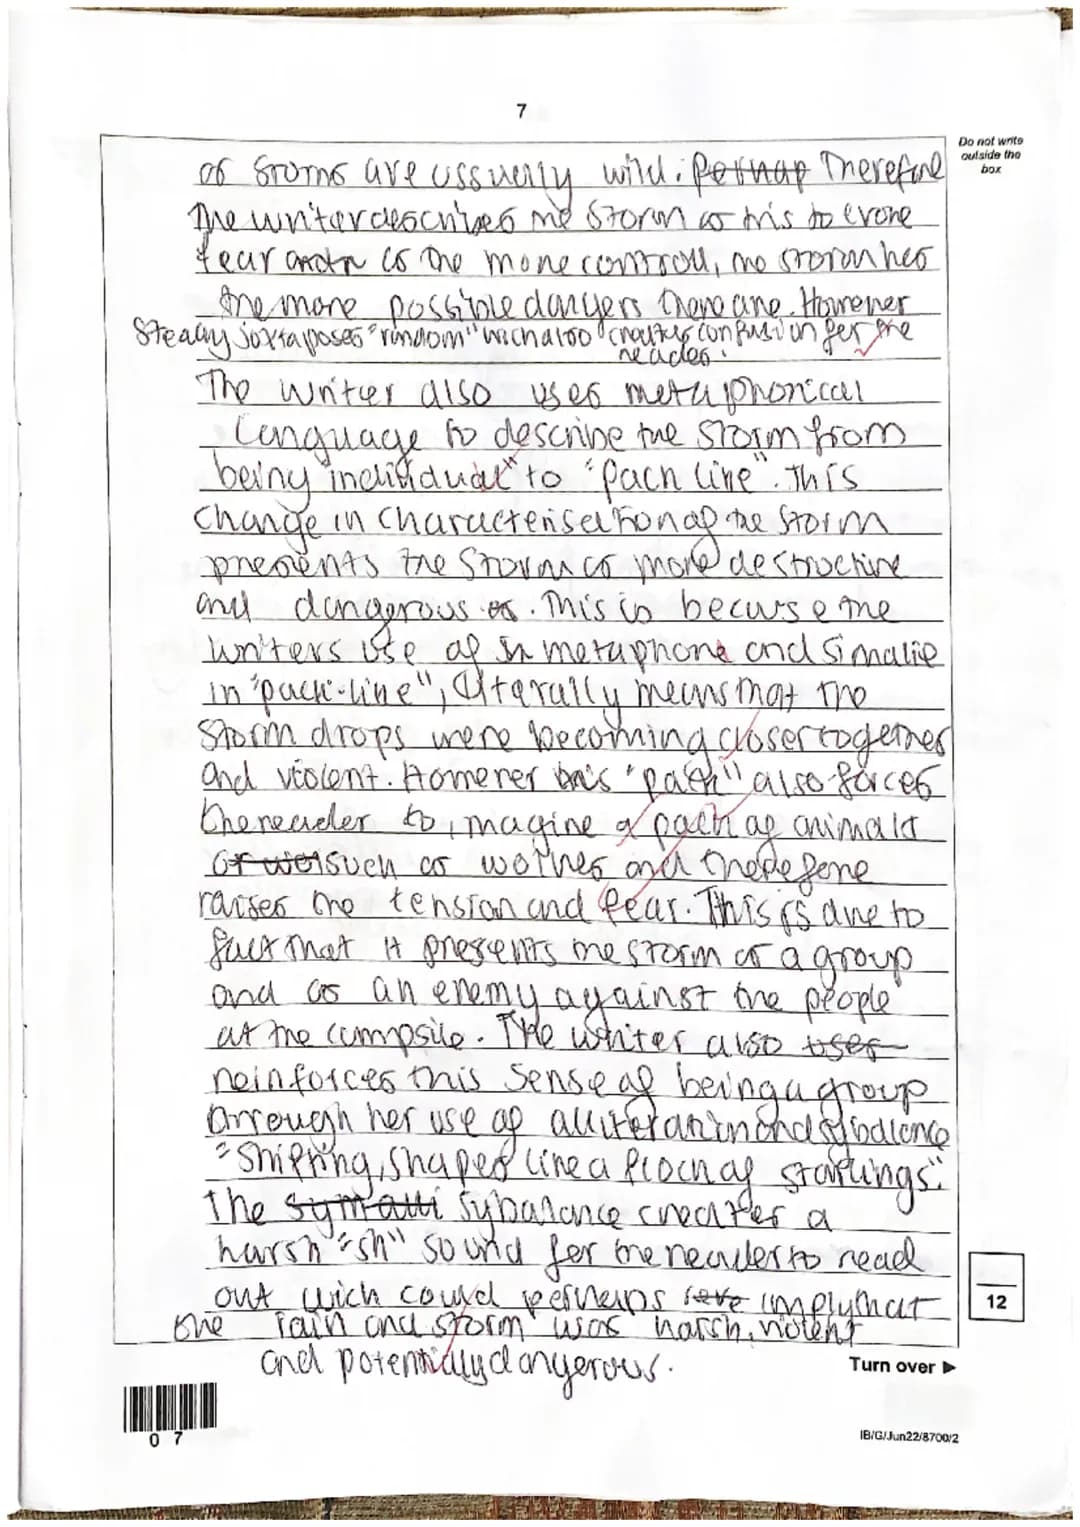 7
Do not write
outside the
box
of Stoms are ussuerly wild. Perhap Therefore
The writer describes the Storm as this to evoke
fear as the more controll, the storm has
the more possible dangers there are. However
Steady juxtaposes "random" wich also creates confusion for the
reader.
The writer also uses metaphorical
Language to describe the storm from
being "individual" to "pack like". This
change in characterisation of the storm
presents the storm as more destructive
and dangerous. This is becuase the
writers use of metaphore and simalie
in "pack-like", literally means that the
Storm drops were becoming closer together
and violent. However this "pack" also forces
the reader to imagine a pack of animals
such as wolves and therefore
raises the tension and fear. This is due to
fact that it presents the storm as a group
and as an enemy against the people
at the campsite. The writer also uses
reinforces this sense of being a group
through her use of alliteration and sybalance
"Shifting, shapes like a flock of starlings".
The sybalance creates a
harsh "sh" sound for the reader to read
out wich could perhaps imply that
the rain and storm was harsh, violent
and potentially dangerous.
12
Turn over ►
0 7
IB/G/Jun22/8700/2